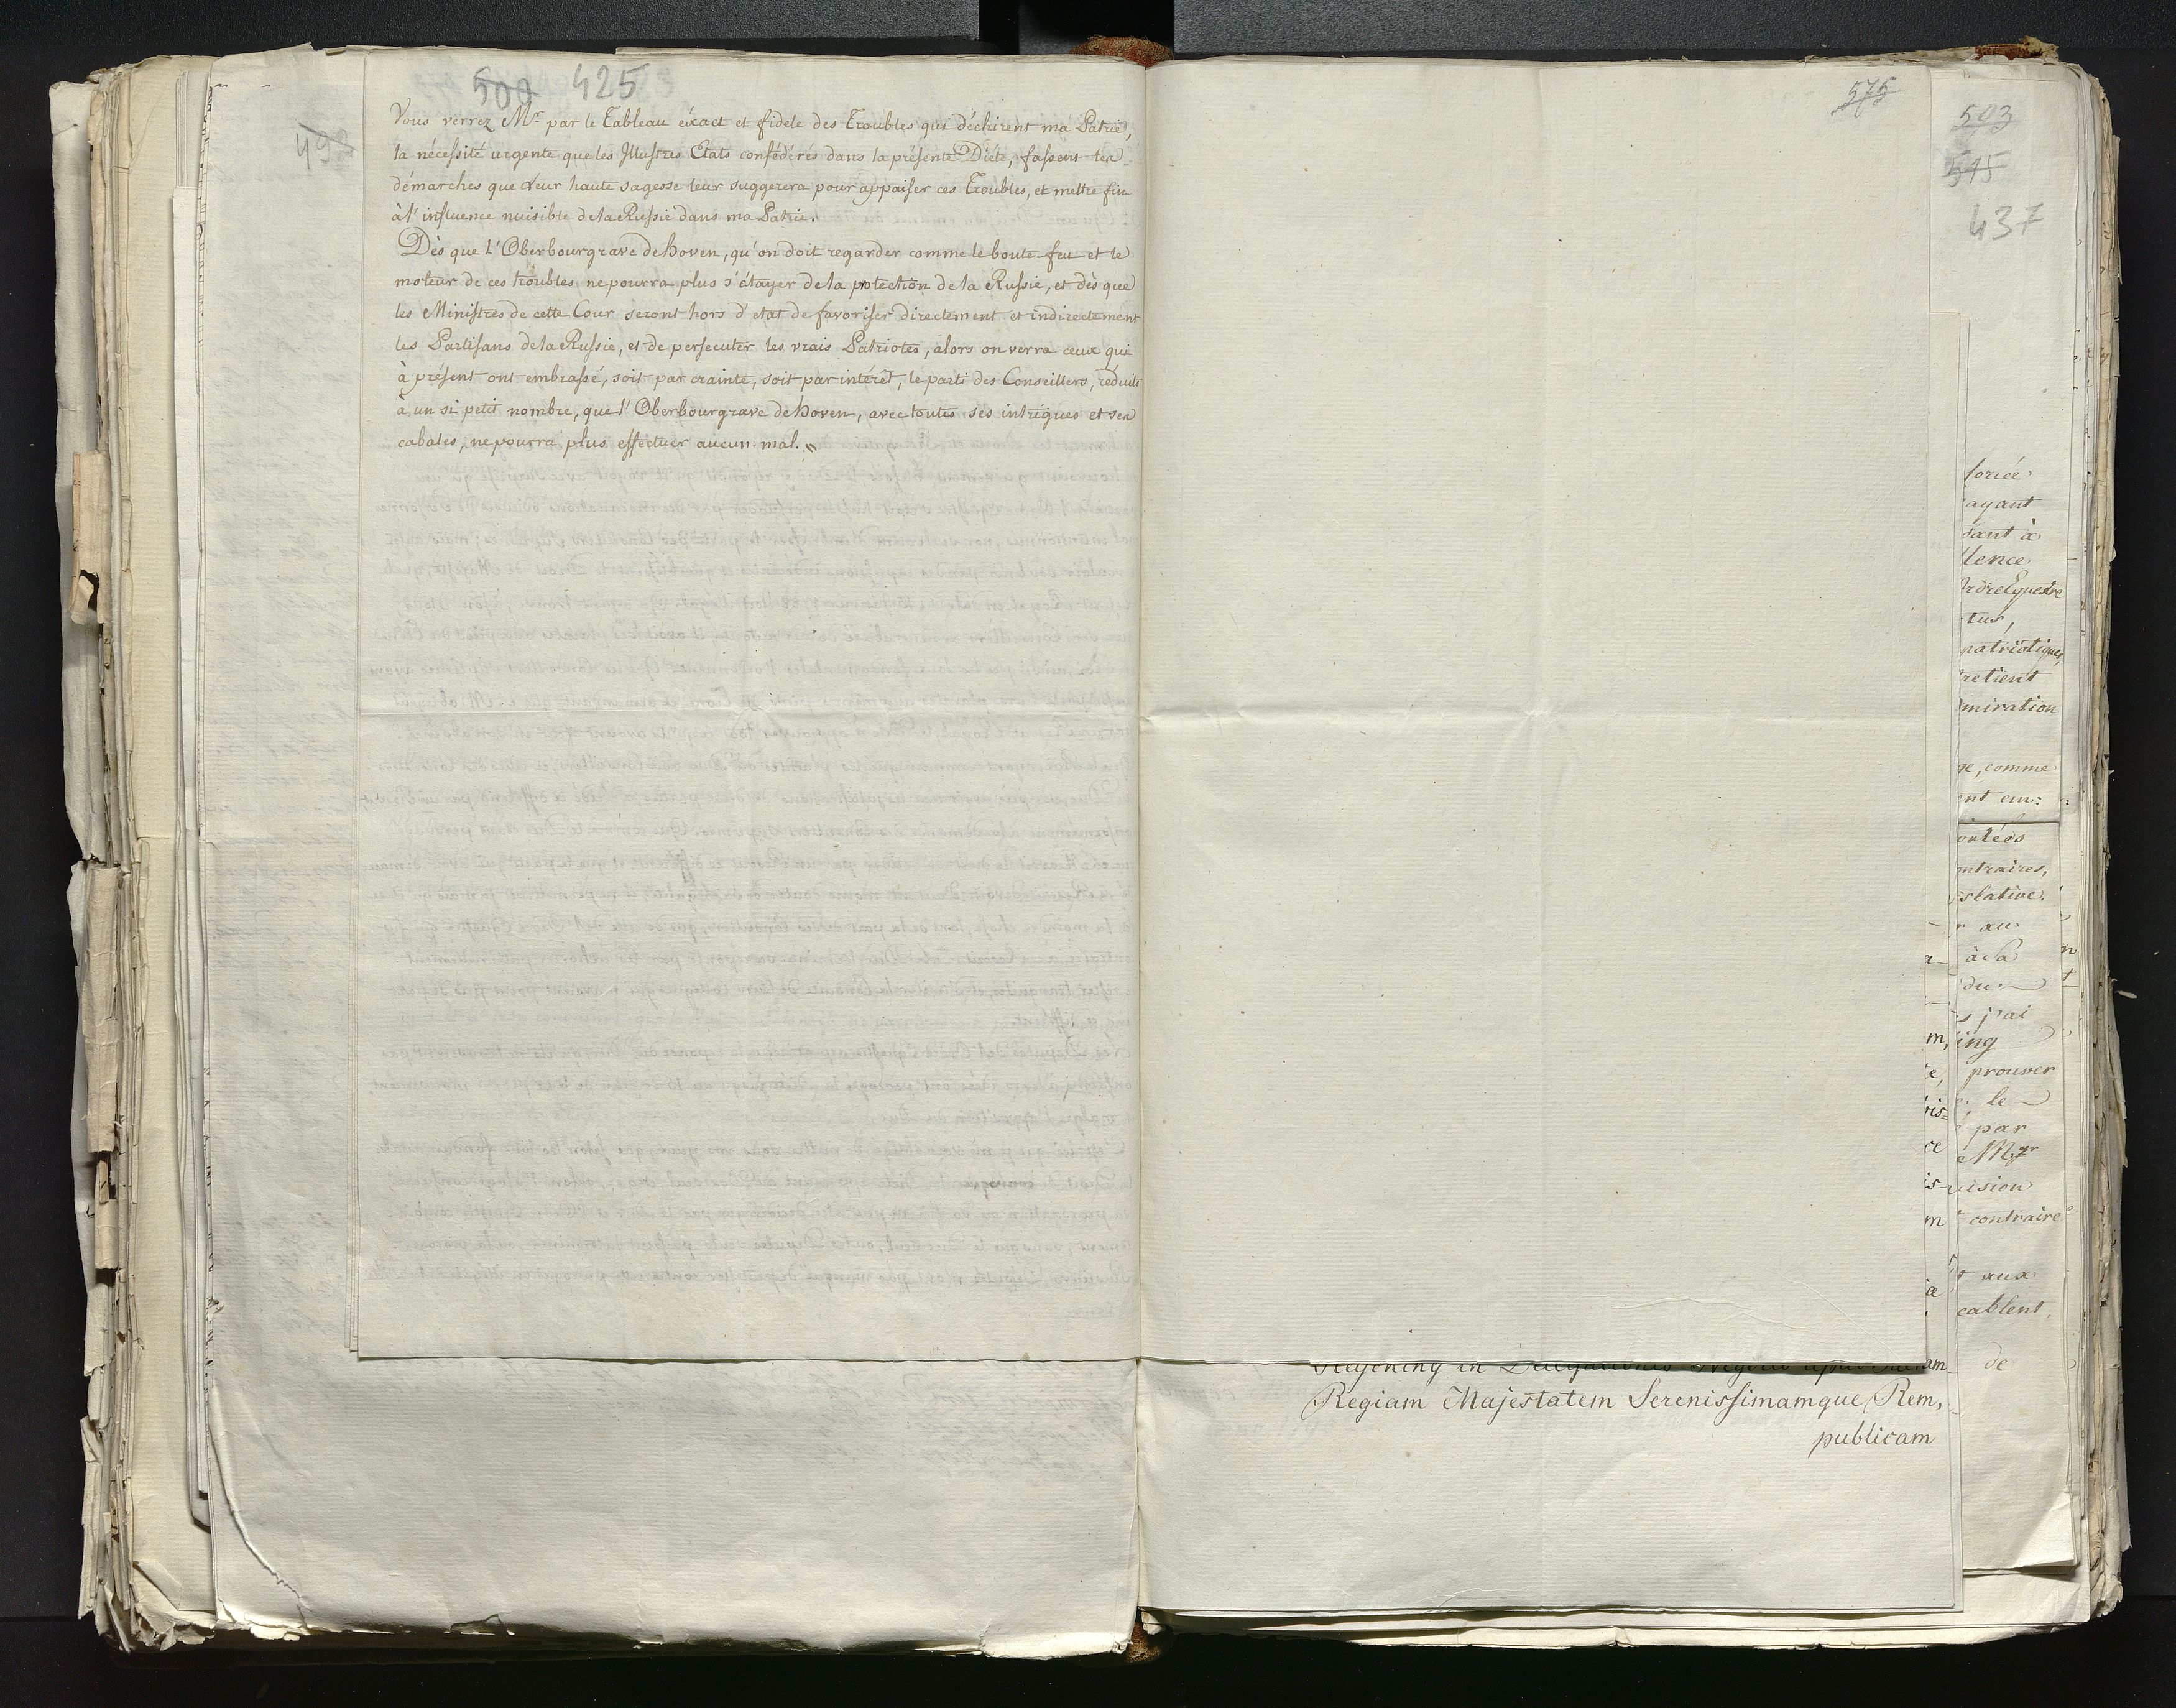 500 425
498
Vous verrez Mr. par le Tableau éxact et fidele des Troubles qui déchirent ma Patrie,
la nécessité urgente que les Illustres Etats confédérés dans la présente Diéte, fassent les
démarches que Leur haute sagesse leur suggerera pour appaiser ces Troubles, et mettre fin
à l'influence nuisible de la Russie dans ma Patrie.
Dès que l'Oberbourgrave de Hoven, qu'on doit regarder comme le boute-feu et le
moteur de ces troubles ne pourra plus s'étayer de la protection de la Russie, et dès que
les Ministres de cette Cour seront hors d'etat de favoriser directement et indirectement
les Partisans de la Russie, et de persecuter les vrais Patriotes, alors on verra ceux qui
à présent ont embrassé, soit par crainte, soit par intérêt, le parti des Conseillers, réduits
à un si petit nombre, que l'Oberbourgrave de Hoven, avec toutes ses intrigues et ses
cabales, ne pourra plus effectuer aucun mal.
575
Regiam Majestatem Serenissimamque Rem,
publicam
503
515
437
forcée
ayant
sant à
lence
Ordre Equestre
tus,
patriotiques,
retient
miration
ge, comme
ent em:
ortées
ontraires,
islative.
r au
à Sa
du
s j'ai
ing
prouver
le
par
Mgr
cision
contraire
aux
cablent,
de